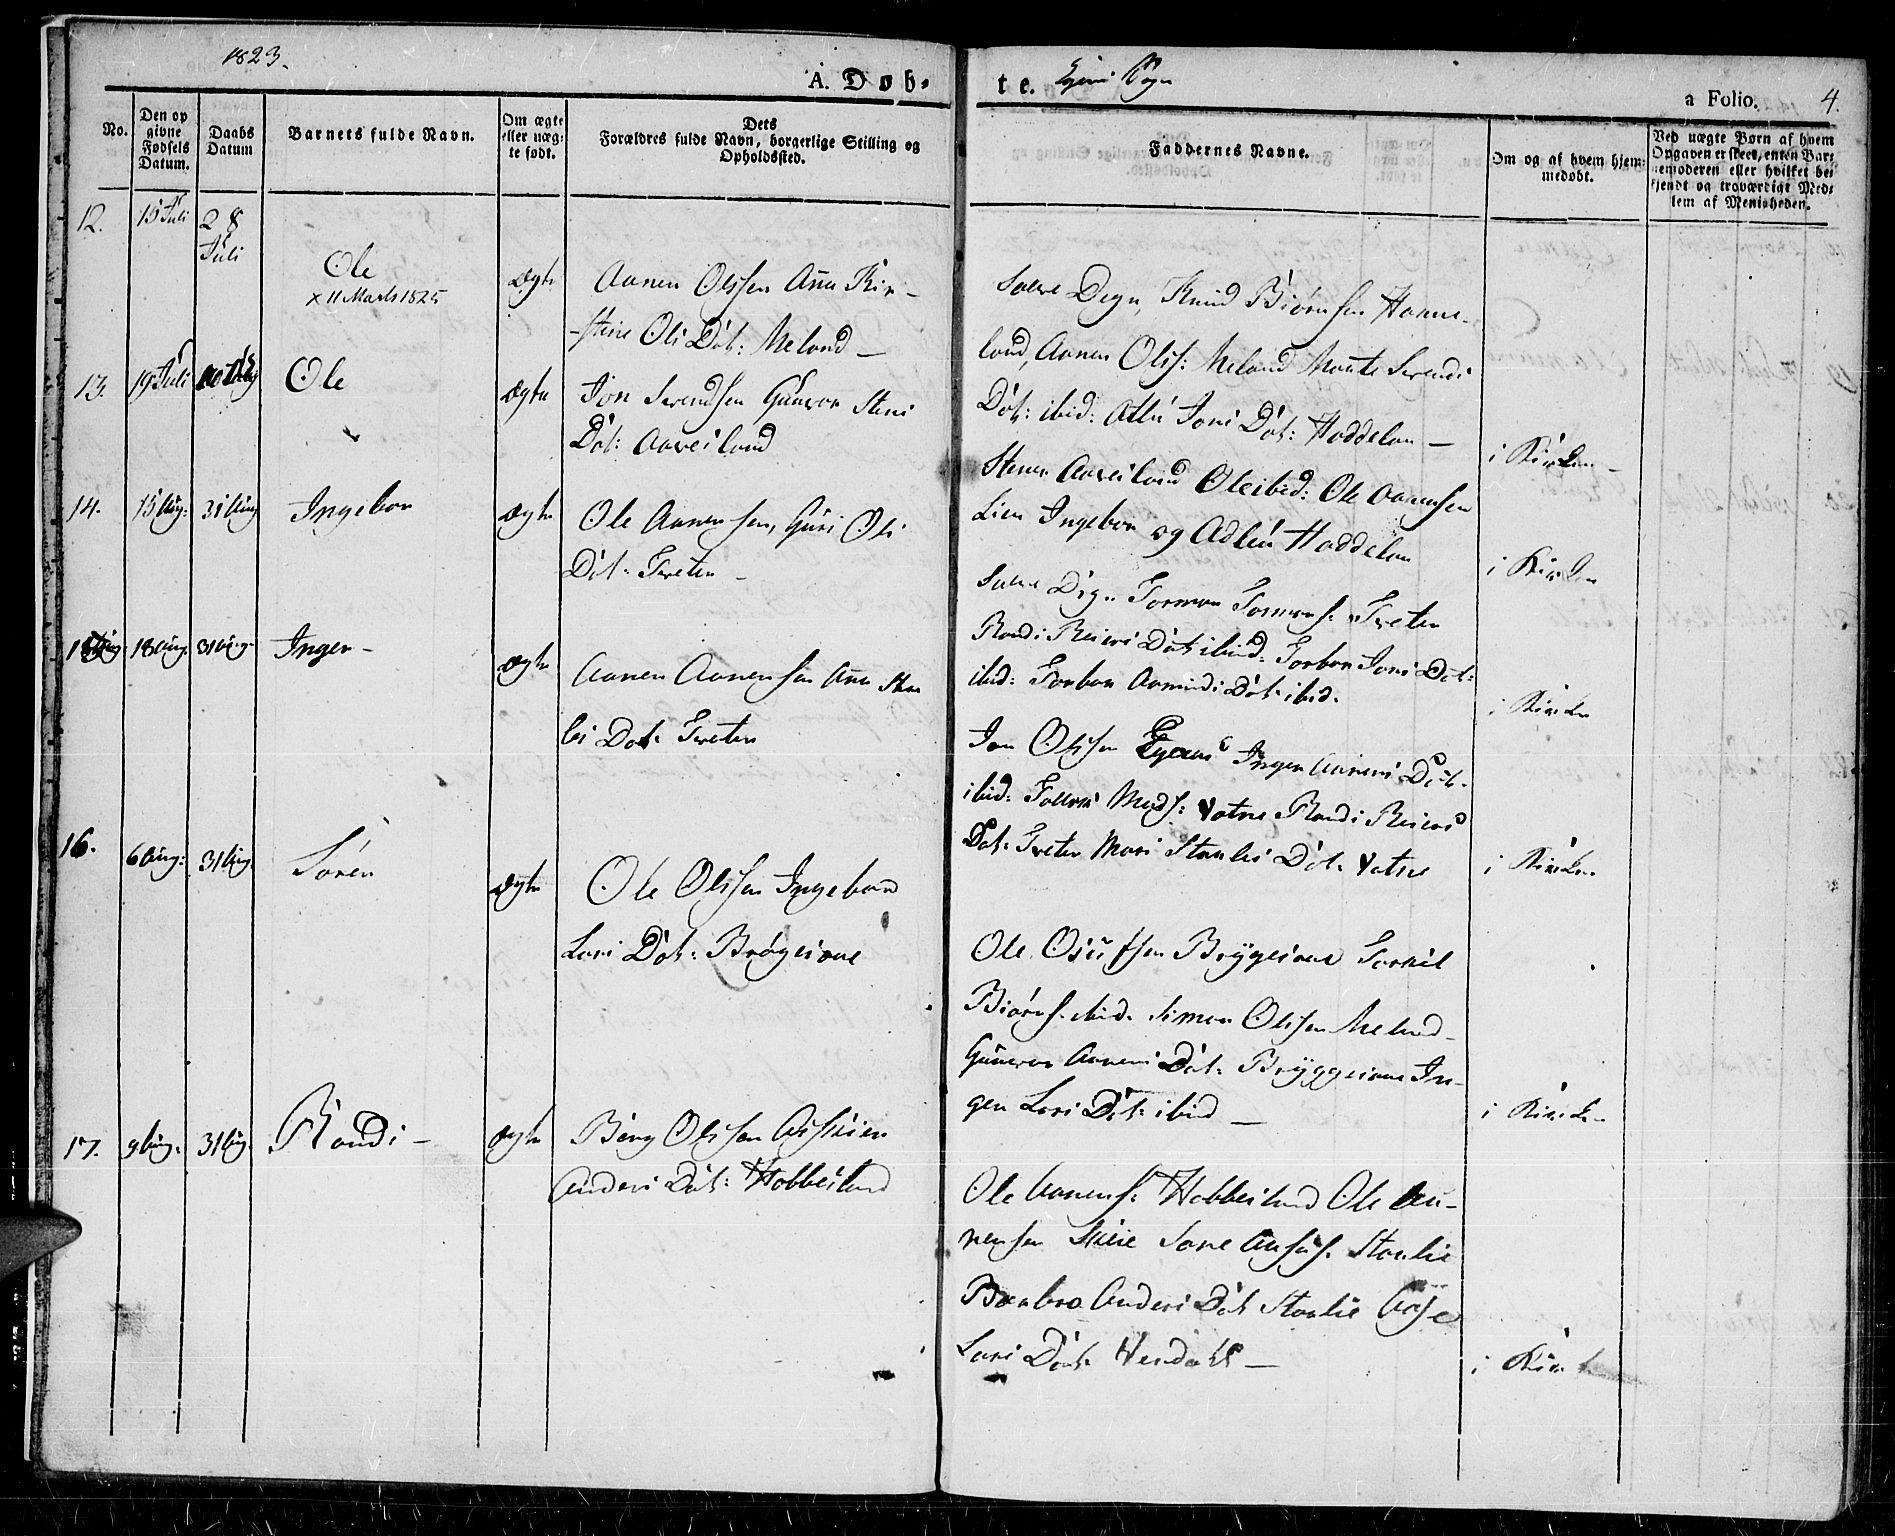 1823.
A. Døb-
te.
Sogn
a Folio. 4.
No.
Den op
givne
Fødsels
Datum.
Daabs
Datum
Barnets fulde Navn.
Om ægte
eller uæg-
te født.
Dets
Forældres fulde Navn, borgerlige Stilling og
Opholdssted.
Faddernes Navne.
Om og af hvem hjem-
medøbt.
Ved uægte Børn af hvem
Opgaven er skeet, enten Bar-
nemoderen eller hvilket be-
kjendt og troværdigt Med-
lem af Menigheden.
12. 15 Juli 28
Juli
Ole
x 11 Marts 1825
Ægte
Aanen Olssen Ana Kir-
-stine Ols Dot: Meland -
Salve Degn, Knud Biørnsen Hanne-
land, Aanen Olss: Meland Marte Svends
Dot: ibid: Jons Dot: Haddelan -
13. 19 Juli
Ole
Ægte
Jon Svendsen Gunvor Stens
Dot: Aavesland
Stener Aavesland Ole ibid: Ole Aanensen
Lien Ingebor og Haddelan
i Kirken -
14. 15 Aug: 31 Aug
Ingebor
Ægte
Ole Aanensen, Guri Ols
Dot: Treten -
Salve Degn Tormon Tormons: Treten
Randi Reiers Dot ibid: Torbor Jons Dot:
ibid: Torbor Dot: ibid.
i Kirken
18 Aug. 31 Aug.
Inger -
Ægte
Aanen Aanensen Ana Stan
les Dot: Treten
Jon Olssen Inger Aanens Dot.
ibid: Mads: Vatne Randi Reiers
Dot: Treten Mari Stanles Dot: Vatne
i Kirken
16. 6 Aug: 31 Aug
Søren
Ægte
Ole Olssen Ingebor
Lars Dot: Brøgesaae
i Kirken
Ole Osufsen Bryggesaae Torkil
Biørns: ibid. Simon Olssen Meland -
Gunvor Aanens Dot: Bryggesaae In-
ger Lars Dot: ibid -
i Kirken
17. 9 Aug: 31 Aug.
Randi -
Ægte
Berg Olssen
Anders Dot: Hobbesland
Ole Aanens: Hobbesland Ole Aa-
nensen Skeie Stanlie
Barbro Anders Dot Stanlie Aase
Lars Dot: -
i Kirk